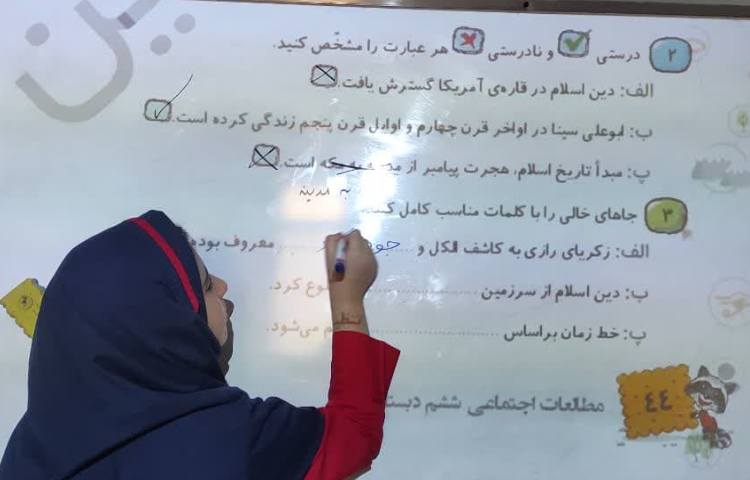 ۲ درستی و نادرستی هر عبارت را مشخّص کنید.
الف: دین اسلام در قاره‌ی آمریکا گسترش یافت.
ب: ابوعلی سینا در اواخر قرن چهارم و اوایل قرن پنجم زندگی کرده است.
پ: مبدأ تاریخ اسلام، هجرت پیامبر از به مکه است.
به مدینه
۳ جاهای خالی را با کلمات مناسب کامل کنید.
الف: زکریای رازی به کاشف الکل و معروف بوده
ب: دین اسلام از سرزمین کرد.
پ: خط زمان براساس تنظیم می‌شود.
مطالعات اجتماعی ششم
۴۴